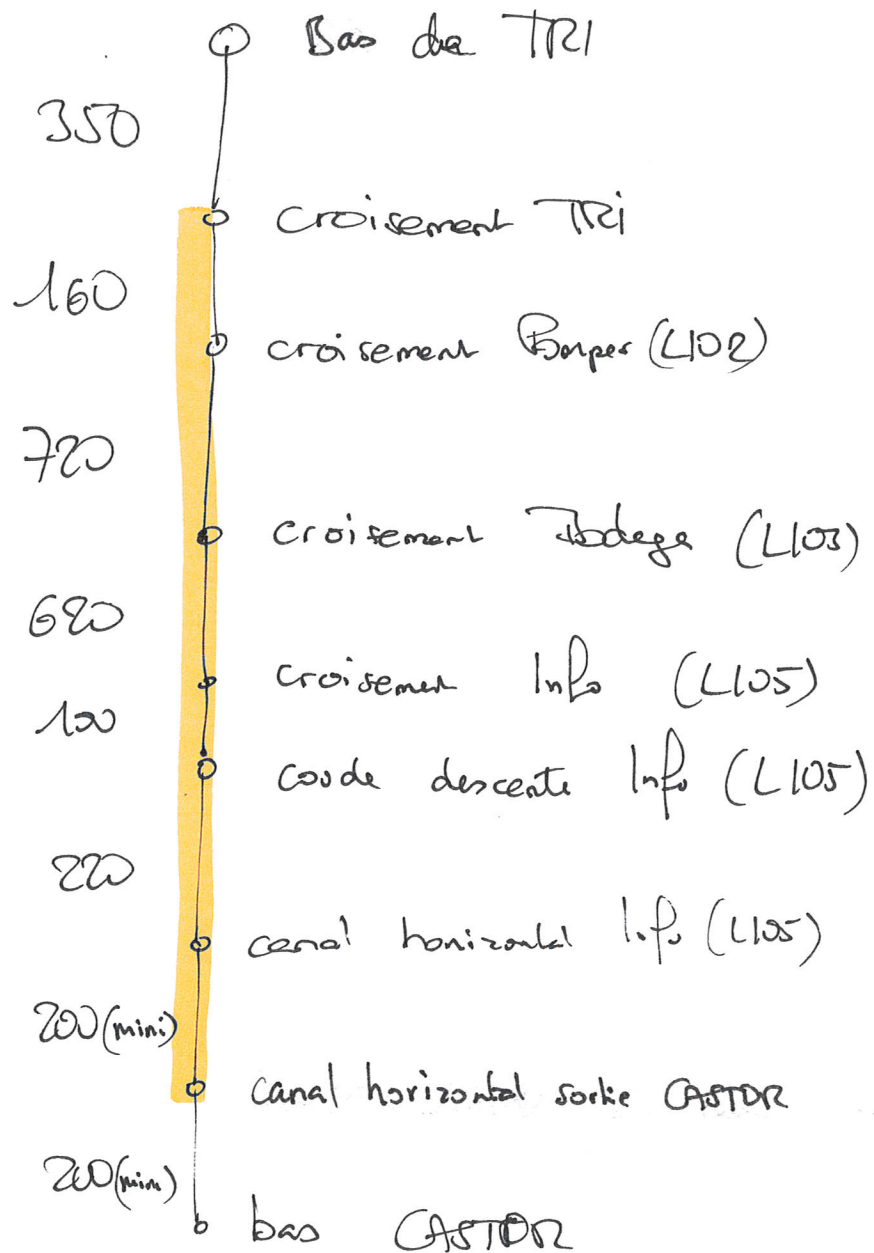 Bas de TRI
350
croisement TRi
160
croisement (L102)
720
croisement Bodega (L103)
620
croisement Info (L105)
100
coude descente Info (L105)
220
canal horizontal Info (L105)
200 (mini)
canal horizontal sortie CASTOR
200 (mini)
bas CASTOR